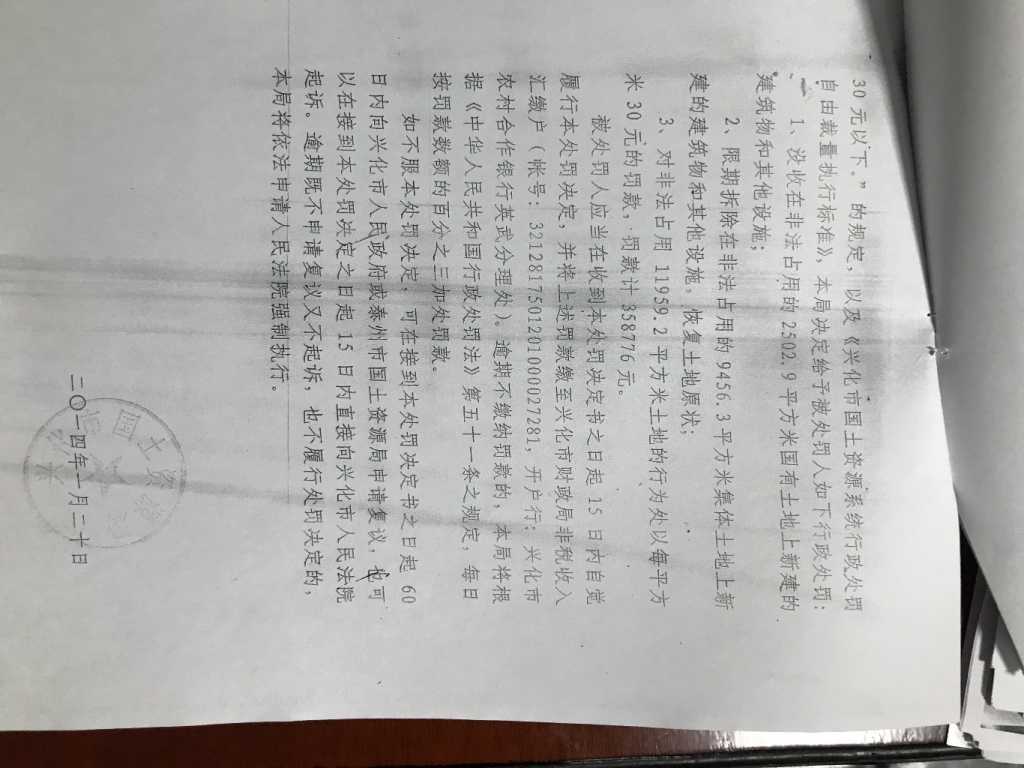 30 元以下。”的规定，以及《兴化市国土资源系统行政处罚
自由裁量执行标准》，本局决定给予被处罚人如下行政处罚：
1、没收在非法占用的 2502.9 平方米国有土地上新建的
建筑物和其他设施；
2、限期拆除在非法占用的 9456.3 平方米集体土地上新
建的建筑物和其他设施，恢复土地原状；
3、对非法占用 11959.2 平方米土地的行为处以每平方
米 30 元的罚款，罚款计 358776 元。
被处罚人应当在收到本处罚决定书之日起 15 日内自觉
履行本处罚决定，并将上述罚款缴至兴化市财政局非税收入
汇缴户（帐号：3212817501201000027281，开户行：兴化市
农村合作银行英武分理处）。逾期不缴纳罚款的，本局将根
据《中华人民共和国行政处罚法》第五十一条之规定，每日
按罚款数额的百分之三加处罚款。
如不服本处罚决定，可在接到本处罚决定书之日起 60
日内向兴化市人民政府或泰州市国土资源局申请复议，也可
以在接到本处罚决定之日起 15 日内直接向兴化市人民法院
起诉。逾期既不申请复议又不起诉，也不履行处罚决定的，
本局将依法申请人民法院强制执行。
二〇一四年一月二十日
国土资源